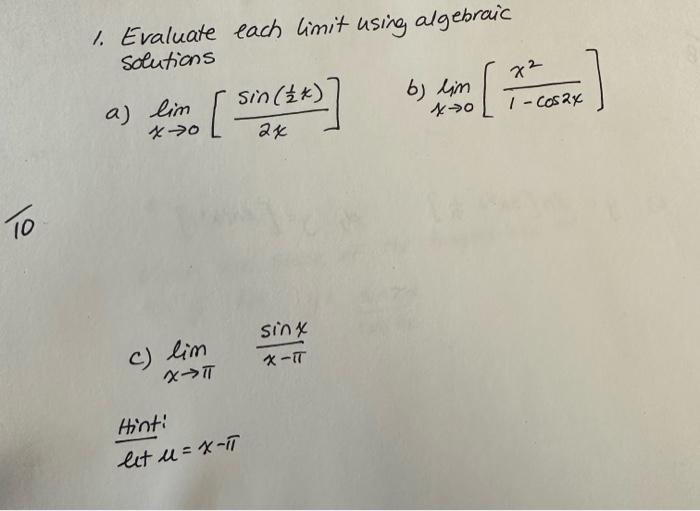 1. Evaluate each limit using algebraic
solutions
a) lim x→0 [ sin(½x) / 2x ]
b) lim x→0 [ x² / 1 - cos2x ]
/10
c) lim x→π sinx / x-π
Hint:
let u = x-π